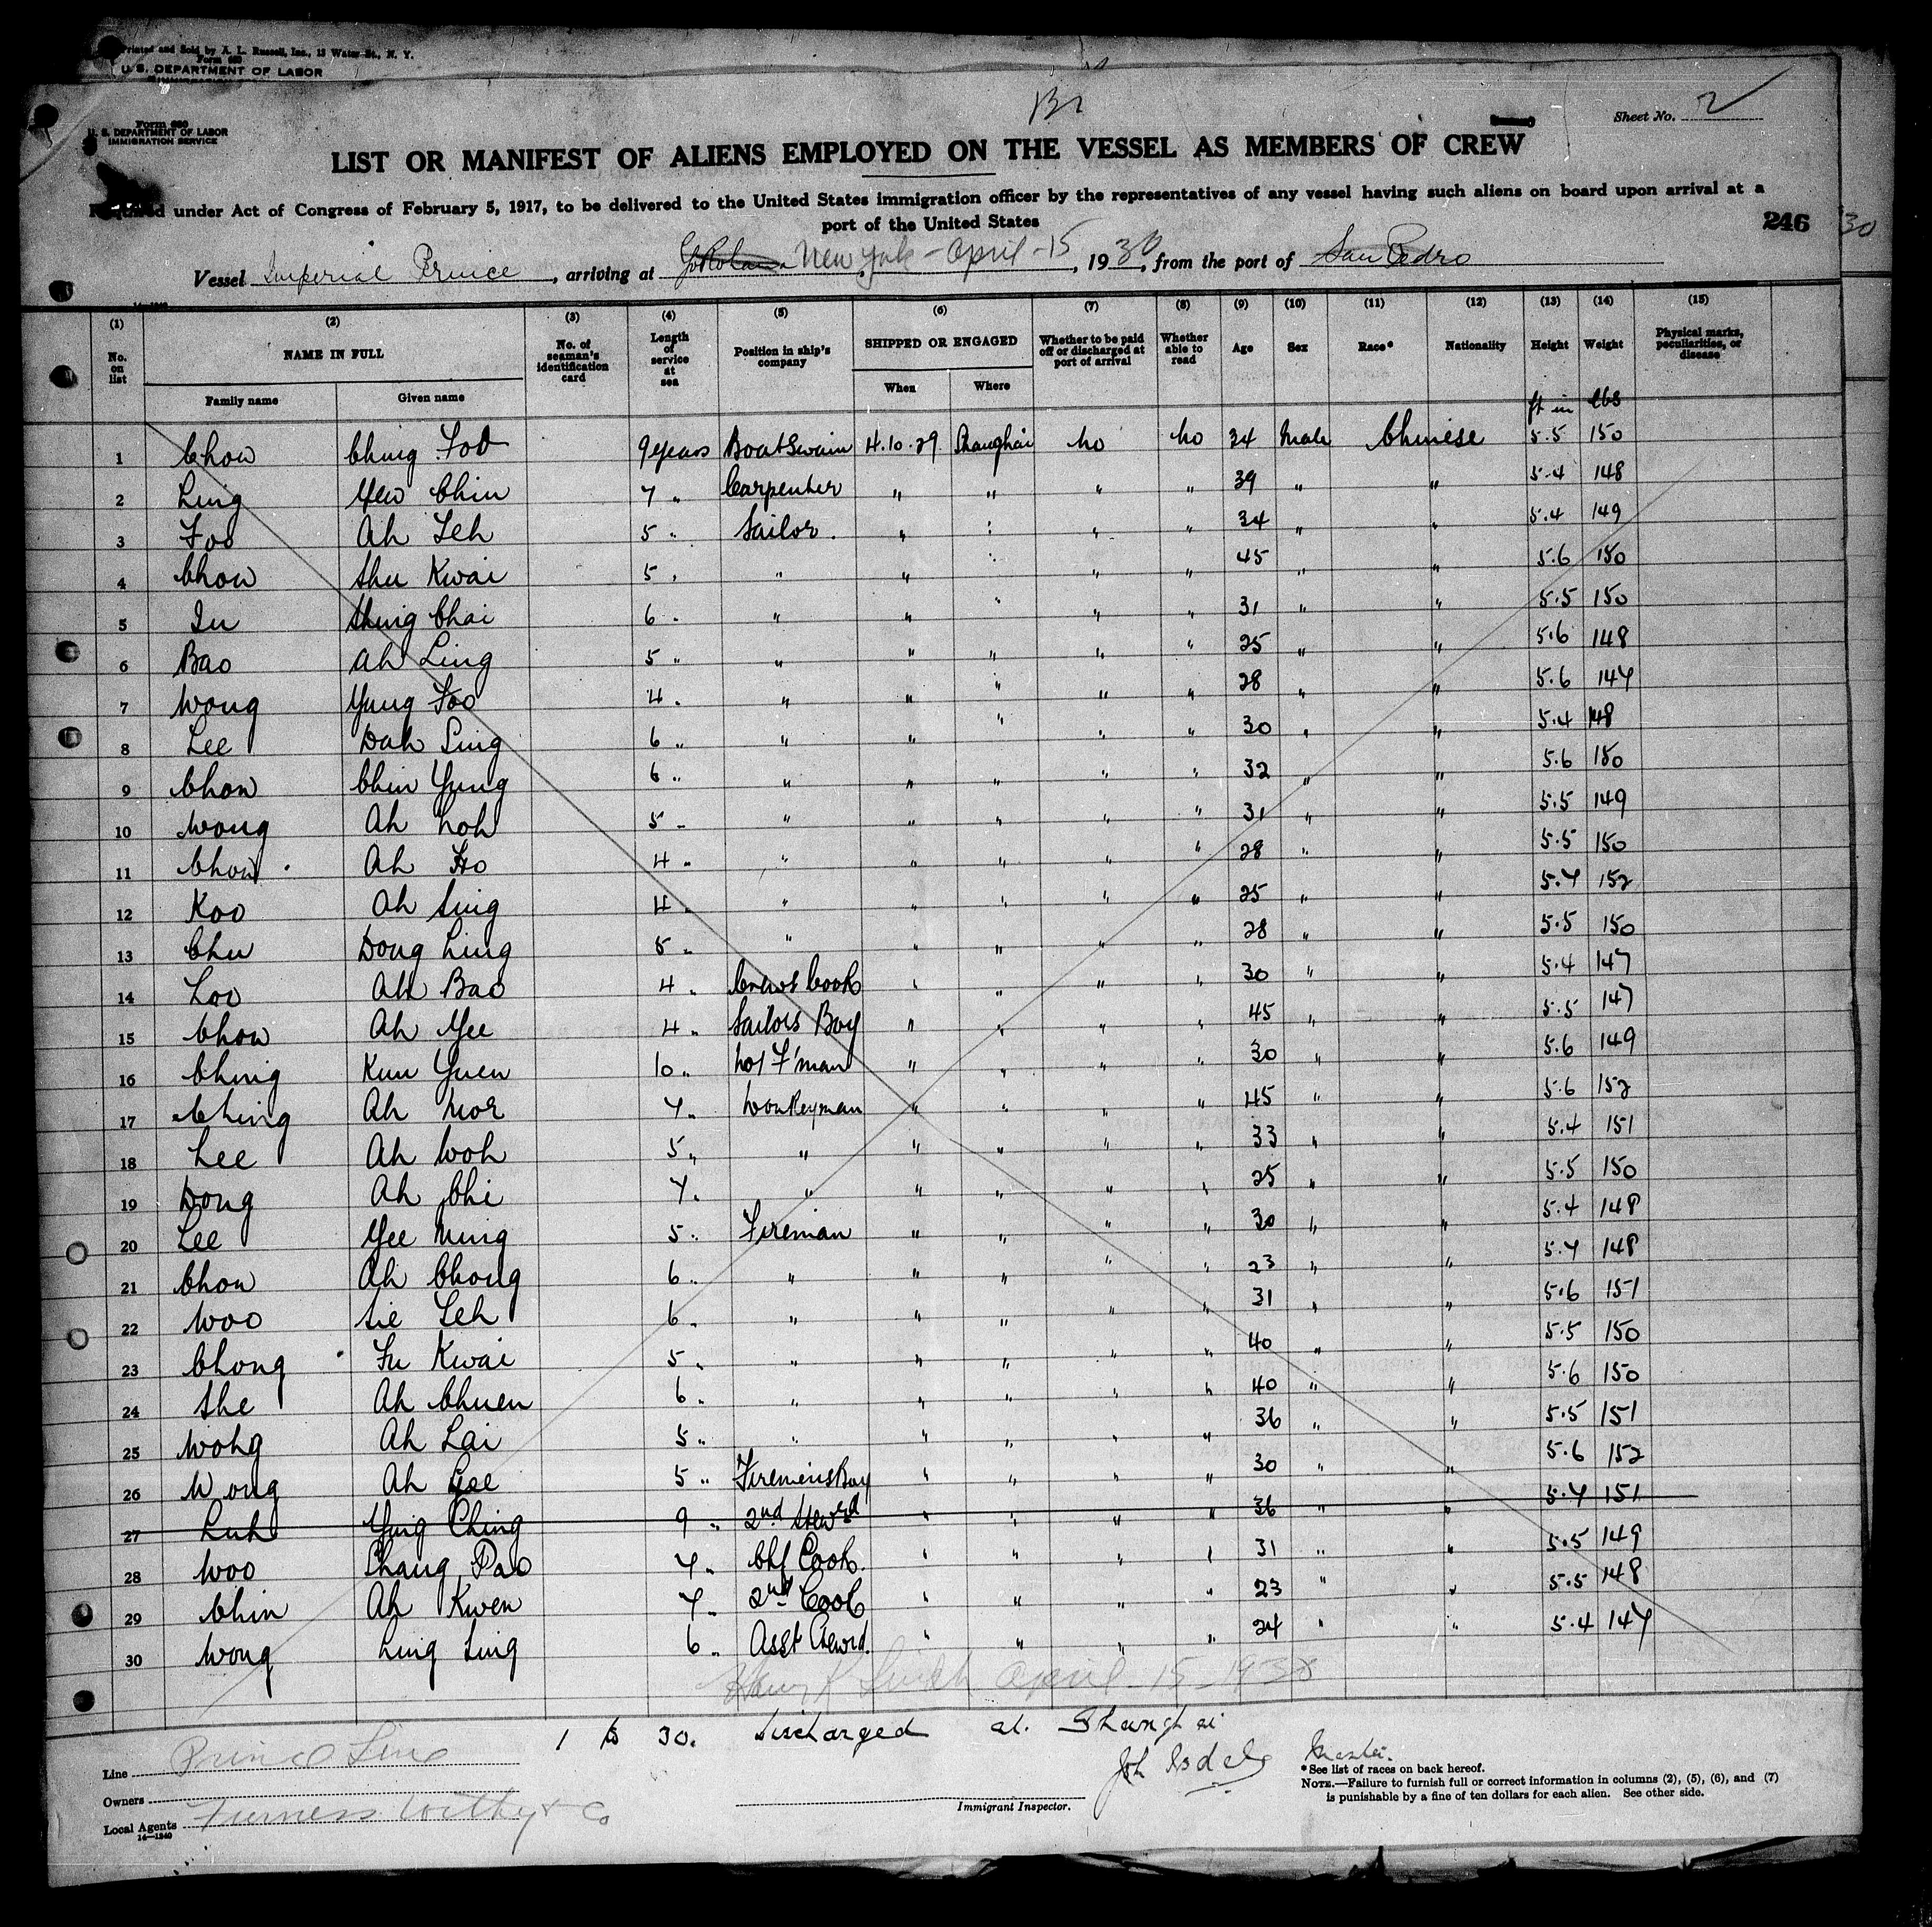 Printed and Sold by A. L. Russell, Inc., 13 Water St., N. Y.
Form 680
U. S. DEPARTMENT OF LABOR
Form 680
U. S. DEPARTMENT OF LABOR
IMMIGRATION SERVICE
Br
Sheet No. 2
LIST OR MANIFEST OF ALIENS EMPLOYED ON THE VESSEL AS MEMBERS OF CREW
Required under Act of Congress of February 5, 1917, to be delivered to the United States immigration officer by the representatives of any vessel having such aliens on board upon arrival at a
port of the United States
246
30
Vessel Imperial Prince, arriving at Yokohama New York - April - 15, 1930, from the port of San Pedro
(1) (2) (3) (4) (5) (6) (7) (8) (9) (10) (11) (12) (13) (14) (15)
No. on list NAME IN FULL Family name Given name No. of seaman's identification card Length of service at sea Position in ship's company SHIPPED OR ENGAGED When Where Whether to be paid off or discharged at port of arrival Whether able to read Age Sex Race* Nationality Height Weight Physical marks, peculiarities, or disease
ft in lbs
1 Chow Ching Foo 9 years Boatswain 4.10.29 Shanghai No No 34 Male Chinese 5.5 150
2 Ling Yew Chin 7 " Carpenter " " " " 39 " " 5.4 148
3 Foo Ah Leh 5 " Sailor " " " 34 " " 5.4 149
4 Chow Shu Kwai 5 " " " " " " 45 " " 5.6 150
5 Shing Chai 6 " " " " " " 31 " " 5.5 150
6 Bao Ah Ling 5 " " " " " " 25 " " 5.6 148
7 Wong Yung Foo 4 " " " " " " 28 " " 5.6 147
8 Lee Dah Sing 6 " " " " " " 30 " " 5.4 148
9 Chow Chin Yung 6 " " " " " " 32 " " 5.6 150
10 Wong Ah Noh 5 " " " " " " 31 " " 5.5 149
11 Chow Ah Ho 4 " " " " " " 28 " " 5.5 150
12 Koo Ah Sing 4 " " " " " " 25 " " 5.7 152
13 Chu Dong Ling 5 " " " " " " 28 " " 5.5 150
14 Loo Ah Bao 4 " Crews Cook " " " " 30 " " 5.4 147
15 Chow Ah Yee 4 " Sailors Boy " " " " 45 " " 5.5 147
16 Ching Kun Yuen 10 " No 1 F'man " " " " 30 " " 5.6 149
17 Ching Ah Mor 7 " Donkeyman " " " " 45 " " 5.6 152
18 Lee Ah Woh 5 " " " " " " 33 " " 5.4 151
19 Dong Ah Chi 7 " " " " " " 25 " " 5.5 150
20 Lee Yee Ming 5 " Fireman " " " " 30 " " 5.4 148
21 Chow Ah Chong 6 " " " " " " 23 " " 5.7 148
22 Woo Sie Leh 6 " " " " " " 31 " " 5.6 151
23 Chong Fu Kwai 5 " " " " " " 40 " " 5.5 150
24 She Ah Chuen 6 " " " " " " 40 " " 5.6 150
25 Wong Ah Lai 5 " " " " " " 36 " " 5.5 151
26 Wong Ah 5 " Firemens Boy " " " " 30 " " 5.6 152
27 Luh Ying Ching 9 " 2nd Stewrd " " " " 36 " " 5.7 151
28 Woo Chang Pao 7 " Chf Cook. " " " " 31 " " 5.5 149
29 Chin Ah Kwen 7 " 2nd Cook " " " " 23 " " 5.5 148
30 Wong Ling Ling 6 " Asst Stewrd. " " " " 24 " " 5.4 147
April - 15 - 1930
1 to 30. discharged at. Shanghai
Line Prince Line
Owners
Local Agents Furness Withy & Co
14—1240
Immigrant Inspector.
Master.
*See list of races on back hereof.
NOTE.—Failure to furnish full or correct information in columns (2), (5), (6), and (7)
is punishable by a fine of ten dollars for each alien. See other side.